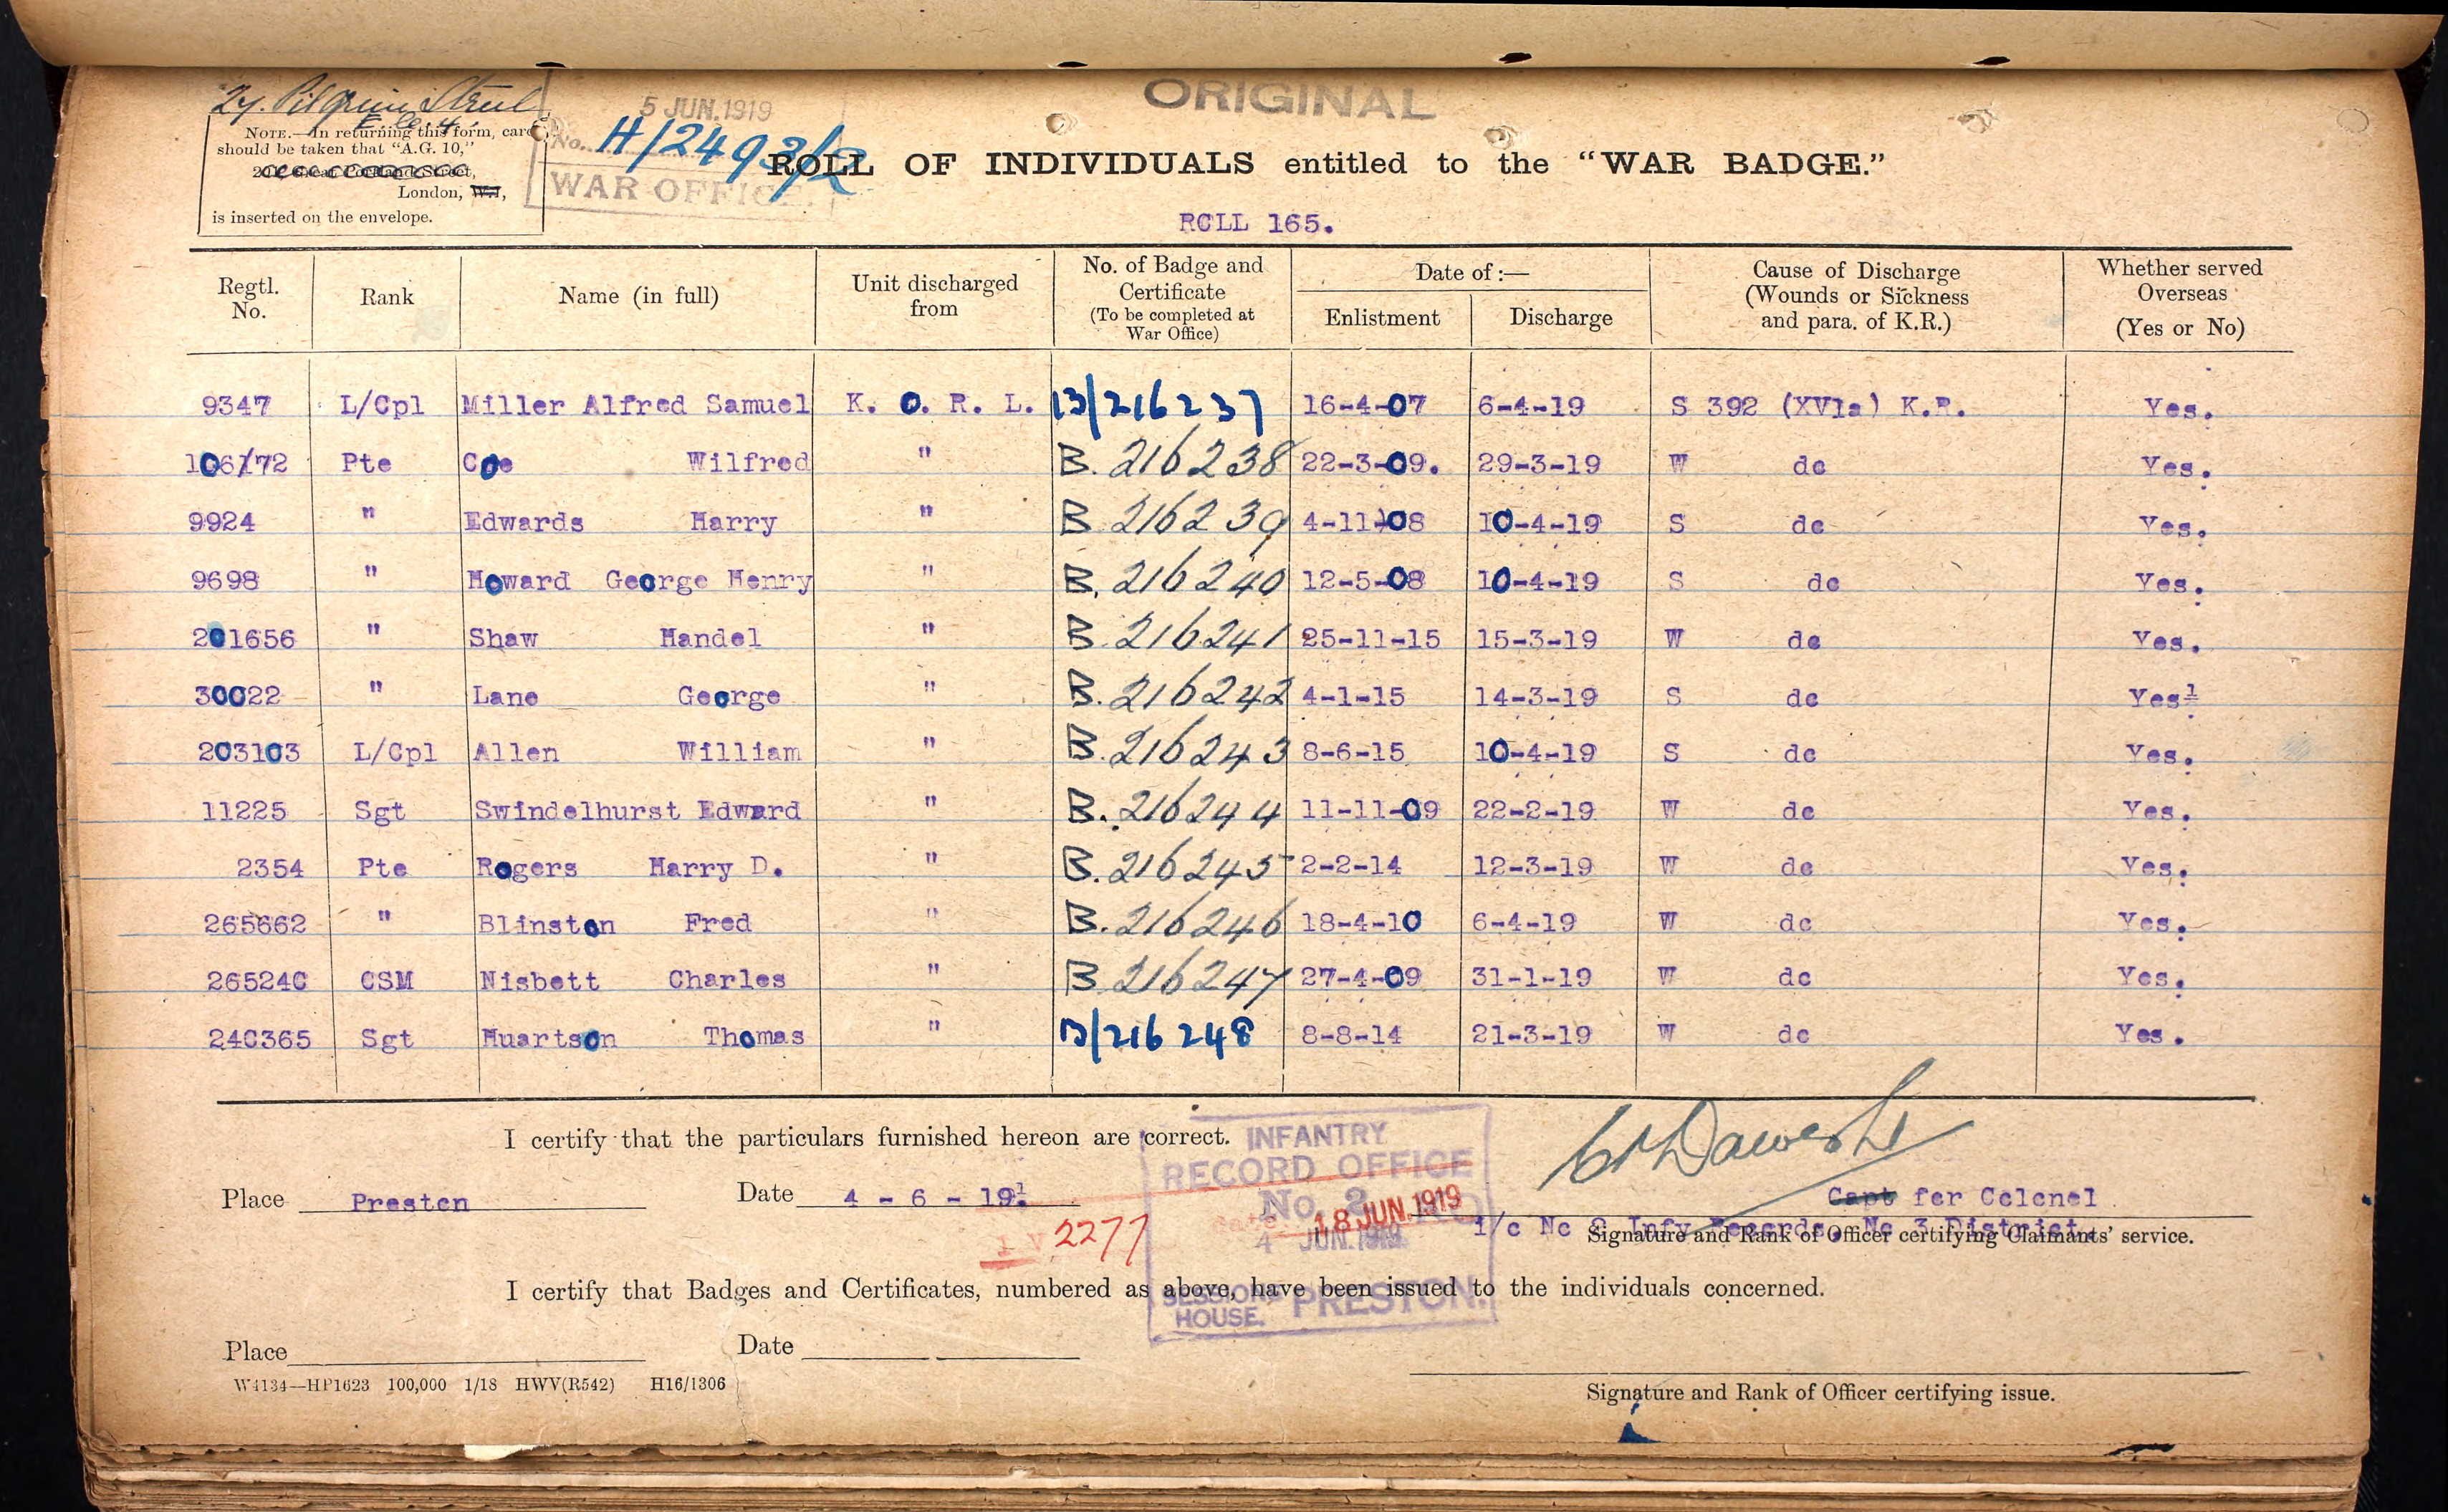 27. Pilgrim Street
E.C.4.
NOTE.—In returning this form, care
should be taken that "A.G. 10,"
Great Portland Street,
London, W.1,
is inserted on the envelope.
5 JUN.1919
No. H/2493/2
WAR OFFICE.
ORIGINAL
ROLL OF INDIVIDUALS entitled to the "WAR BADGE."
ROLL 165.
Regtl. No. Rank Name (in full) Unit discharged from No. of Badge and Certificate (To be completed at War Office) Date of :— Enlistment Discharge Cause of Discharge (Wounds or Sickness and para. of K.R.) Whether served Overseas (Yes or No)
9347 L/Cpl Miller Alfred Samuel K. O. R. L. B/216237 16-4-07 6-4-19 S 392 (XVIa) K.R. Yes.
106172 Pte Coe Wilfred " B. 216238 22-3-09. 29-3-19 W do Yes.
9924 " Edwards Harry " B 216239 4-11-08 10-4-19 S do Yes.
9698 " Howard George Henry " B. 216240 12-5-08 10-4-19 S do Yes.
201656 " Shaw Handel " B. 216241 25-11-15 15-3-19 W do Yes.
30022 " Lane George " B. 216242 4-1-15 14-3-19 S do Yes
203103 L/Cpl Allen William " B. 216243 8-6-15 10-4-19 S do Yes.
11225 Sgt Swindelhurst Edward " B. 216244 11-11-09 22-2-19 W do Yes.
2354 Pte Rogers Harry D. " B. 216245 2-2-14 12-3-19 W do Yes.
265662 " Blinston Fred " B. 216246 18-4-10 6-4-19 W do Yes.
265240 CSM Nisbett Charles " B 216247 27-4-09 31-1-19 W do Yes.
240365 Sgt Huartson Thomas " B/216248 8-8-14 21-3-19 W do Yes.
I certify that the particulars furnished hereon are correct.
INFANTRY
RECORD OFFICE
No. 2
18 JUN.1919
4 JUN.1919
SESSIONS HOUSE. PRESTON.
Place Preston Date 4 - 6 - 19.
2277
Capt for Colonel
i/c No 2 Infy Records, No 3 District.
Signature and Rank of Officer certifying Claimants' service.
I certify that Badges and Certificates, numbered as above, have been issued to the individuals concerned.
Place Date
W4134—HP1623 100,000 1/18 HWV(R542) H16/1306
Signature and Rank of Officer certifying issue.